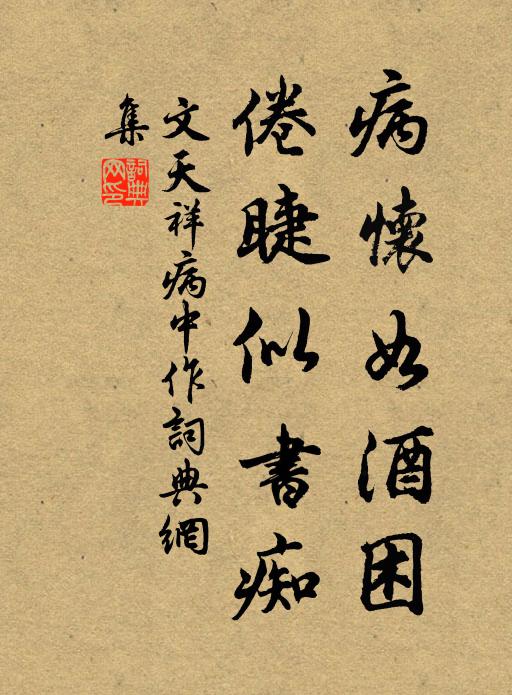 病懷如酒困
倦睫似書痴
文天祥病中作詞典網
集
詞典网印